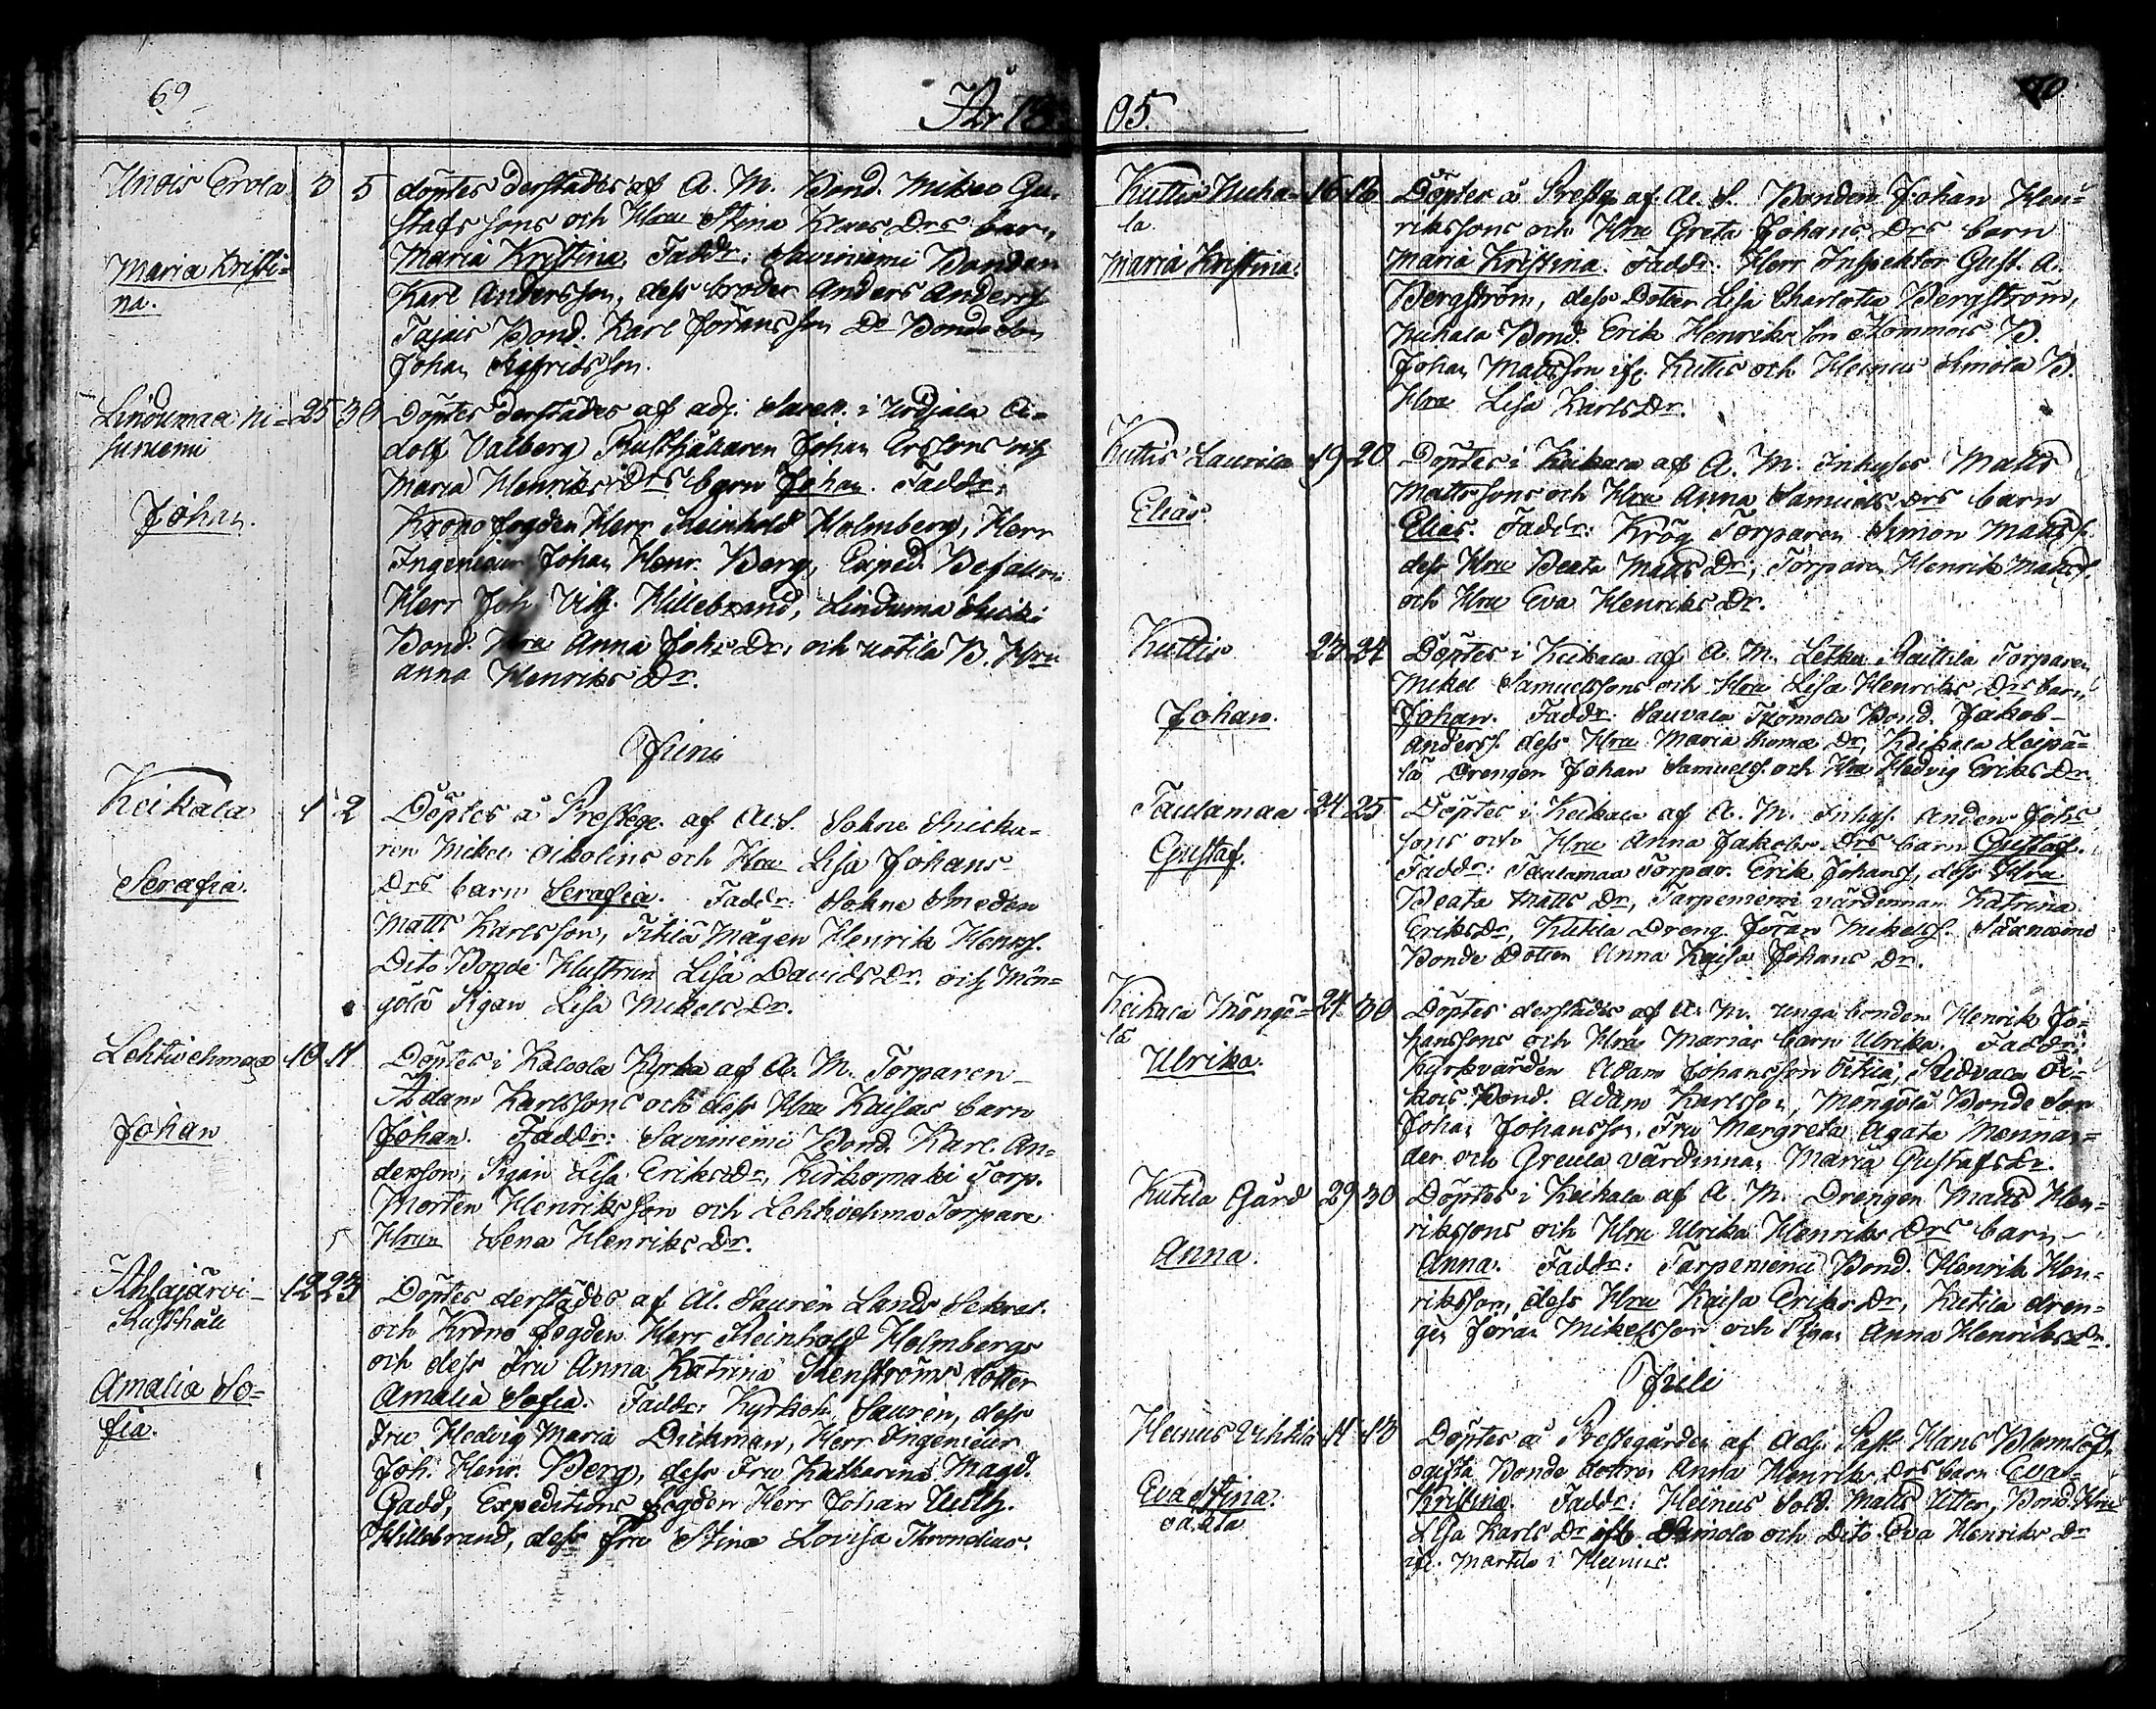 69
År 18
Unois Erola 3 5 döptes derstädes af A. M. Bond. Mikel Gu-
stafssons och Hru Stina Klaes Drs barn
Maria Kristi= Maria Kristina. Faddr: Saviniemi Bonden
na. Karl Andersson, dess broder Anders Anderss.
Bond. Karl Johansson De Bonde Son
Johan Sigfridsson.
Lindumaa Ni= 25 30 Döptes derstädes af adj. i Urdjala
suniemi dolf Valberg Rusthållaren Johan Erssons och
Maria Henriks Drs barn Johan. Faddr:
Johan. Krono fogden Herr Reinhold Holmberg, Herr
Ingenieur Johan Henr. Berg, Exped. Befallni
Herr Joh. Vilh. Hillebrand, Linduma
Bond. Hru Anna Johs Dr, och Uotila B. Hru
Anna Henriks Dr.
Juni
Keikala 1 2 Döptes å Prestg. af Al. S. Sohne Snicka-
ren Mikel och Hru Lisa Johans
Serafia. Drs barn Serafia. Faddr: Sohne Smeden
Matts Karlsson, Mågen Henrik Henrs.
Dito Bonde Hustrun Lisa Davids Dr. och Mön=
gölä Pigan Lisa Mikels Dr.
Lehtiehmaa 10 11 Döptes i Kalvola Kyrka af A. M. Torparen
Adam Karlssons och dess Hru Kaisas barn
Johan Johan. Faddr: Saviniemi Bond. Karl An-
dersson, Pigan Lisa Eriks Dr, Kirkomäki Torp.
Morten Henriksson och Lehtiehma Torpare
Hrun Lena Henriks Dr.
Ahlajärvi 12 23 Döptes derstädes af Al. Saurén Lands Sekret.
Rusthåll och Krono fogden Herr Reinhold Holmbergs
och dess Fru Anna Katrina Stenströms dotter
Amalia So= Amalia Sofia. Faddr: Kyrkoh. Saurén, dess
fia. Fru Hedvig Maria Dickman, Herr Ingenieur
Joh. Henr. Berg, dess Fru Katharina Magd.
Gadd, Expeditions fogden Herr Johan Vilh.
Hillebrand, dess fru Stina Lovisa
05.
70
Kuttis Nuha- 16 16 Döptes å Prestg. af Al. S. Bonden Johan Hen=
la rikssons och Hru Greta Johans Drs barn
Maria Kristina. Maria Kristina. Faddr: Herr Inspektor Gust. A.
Bergström, dess Dotter Lisa Charlotta Bergström,
Nuhala Bond. Erik Henriks Son B.
Johan Mattsson ifr. Kuttis och Heinus Simola B.
Hru Lisa Karls Dr.
Kuttis Laurila 19 20 Döptes i Keikala af A. M. Inhyses Matts
Mattssons och Hru Anna Samuels Drs barn
Elias. Elias. Faddr: Krög Torparen Simon Mattss.
dess Hru Beata Matts Dr, Torparen Henrik Mattss.
och Hru Eva Henriks Dr.
Kuttis 23 24 Döptes i Keikala af A. M. Letku Raittila Torparen
Mikel Samuelssons och Hru Lisa Henriks Drs barn
Johan. Johan. Faddr: Sauvala Tuomola Bond. Jakob
Anderss. dess Hru Maria Thomæ Dr, Keikala Leipä=
lä Drengen Johan Samuelss. och Hru Hedvig Eriks Dr.
Taulamaa 24 25 Döptes i Keikala af A. M. Inhys. Anders Johs
sons och Hru Anna Jakobs Drs barn Gustaf.
Gustaf. Faddr: Taulamaa Torpar. Erik Johanss, dess Hru
Beata Matts Dr, Tarpeniemi värdinnan Katrina
Eriks Dr, Kutila Dreng. Jöran Mikelss. Särniemi
Bonde Dottren Anna Kajsa Johans Dr.
Keikala Möngö= 24 30 Döptes derstädes af A. M. unga bonden Henrik Jo=
lä hanssons och Hru Marias barn Ulrika. Faddr:
Ulrika. Kyrkvärden Adam Johansson Sidvala
Bond. Adam Karlsson, Möngölä Bonde Son
Johan Johansson, Fru Margreta Agata Mennan=
der och Greula Värdinnan Maria Gustafs Dr.
Kutila Gård 29 30 Döptes i Keikala af A. M. Drengen Matts Hen-
rikssons och Hru Ulrika Henriks Drs barn
Anna. Anna. Faddr: Tarpeniemi Bond. Henrik Hen-
riksson, dess Hru Kaisa Eriks Dr, Kutila dren=
gen Jöran Mikelsson och Pigan Anna Henriks Dr.
Juli
Heinus Uhkila 11 13 Döptes å Prestegården af Adj. Past. Hans
ogifta Bonde dottren Anna Henriks Drs barn Eva
Eva Stina. Kristina. Faddr: Heinus Sold. Matts Utter, Bond. Hru
oäkta Lisa Karls Dr ifr. Simola och Dito Eva Henriks Dr
ifr. Martila i Heinus.